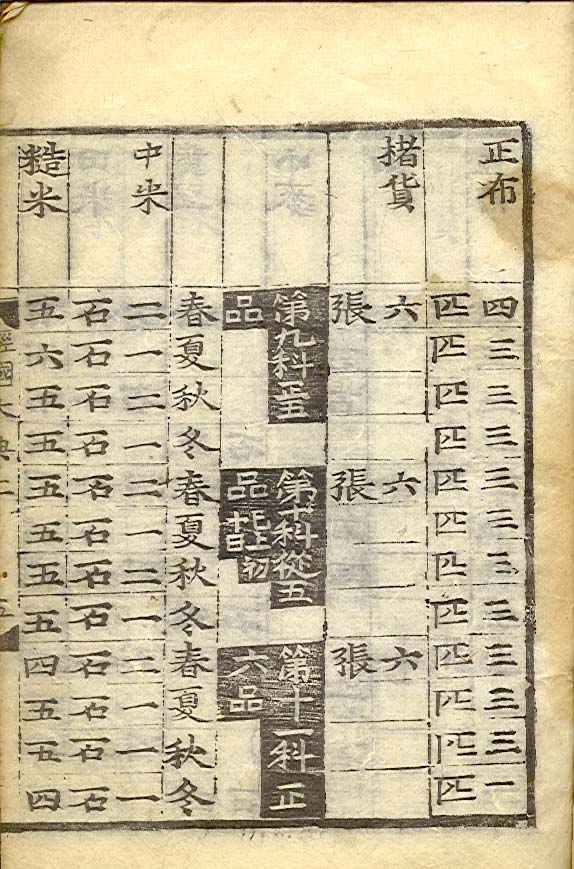 正布 四 三 三 三 三 三 三 三 三 三 三 一
匹 匹 匹 匹 匹 匹 匹 匹 匹 匹 匹 匹
楮貨 六 六 六
張 張 張
第九科正五 第十科從五 第十一科正
品 品 六品
春 夏 秋 冬 春 夏 秋 冬 春 夏 秋 冬
中米 二 一 二 一 二 一 二 一 二 一 一 一
石 石 石 石 石 石 石 石 石 石 石 石
糙米 五 六 五 五 五 五 五 五 四 五 五 四
經國大典二 五